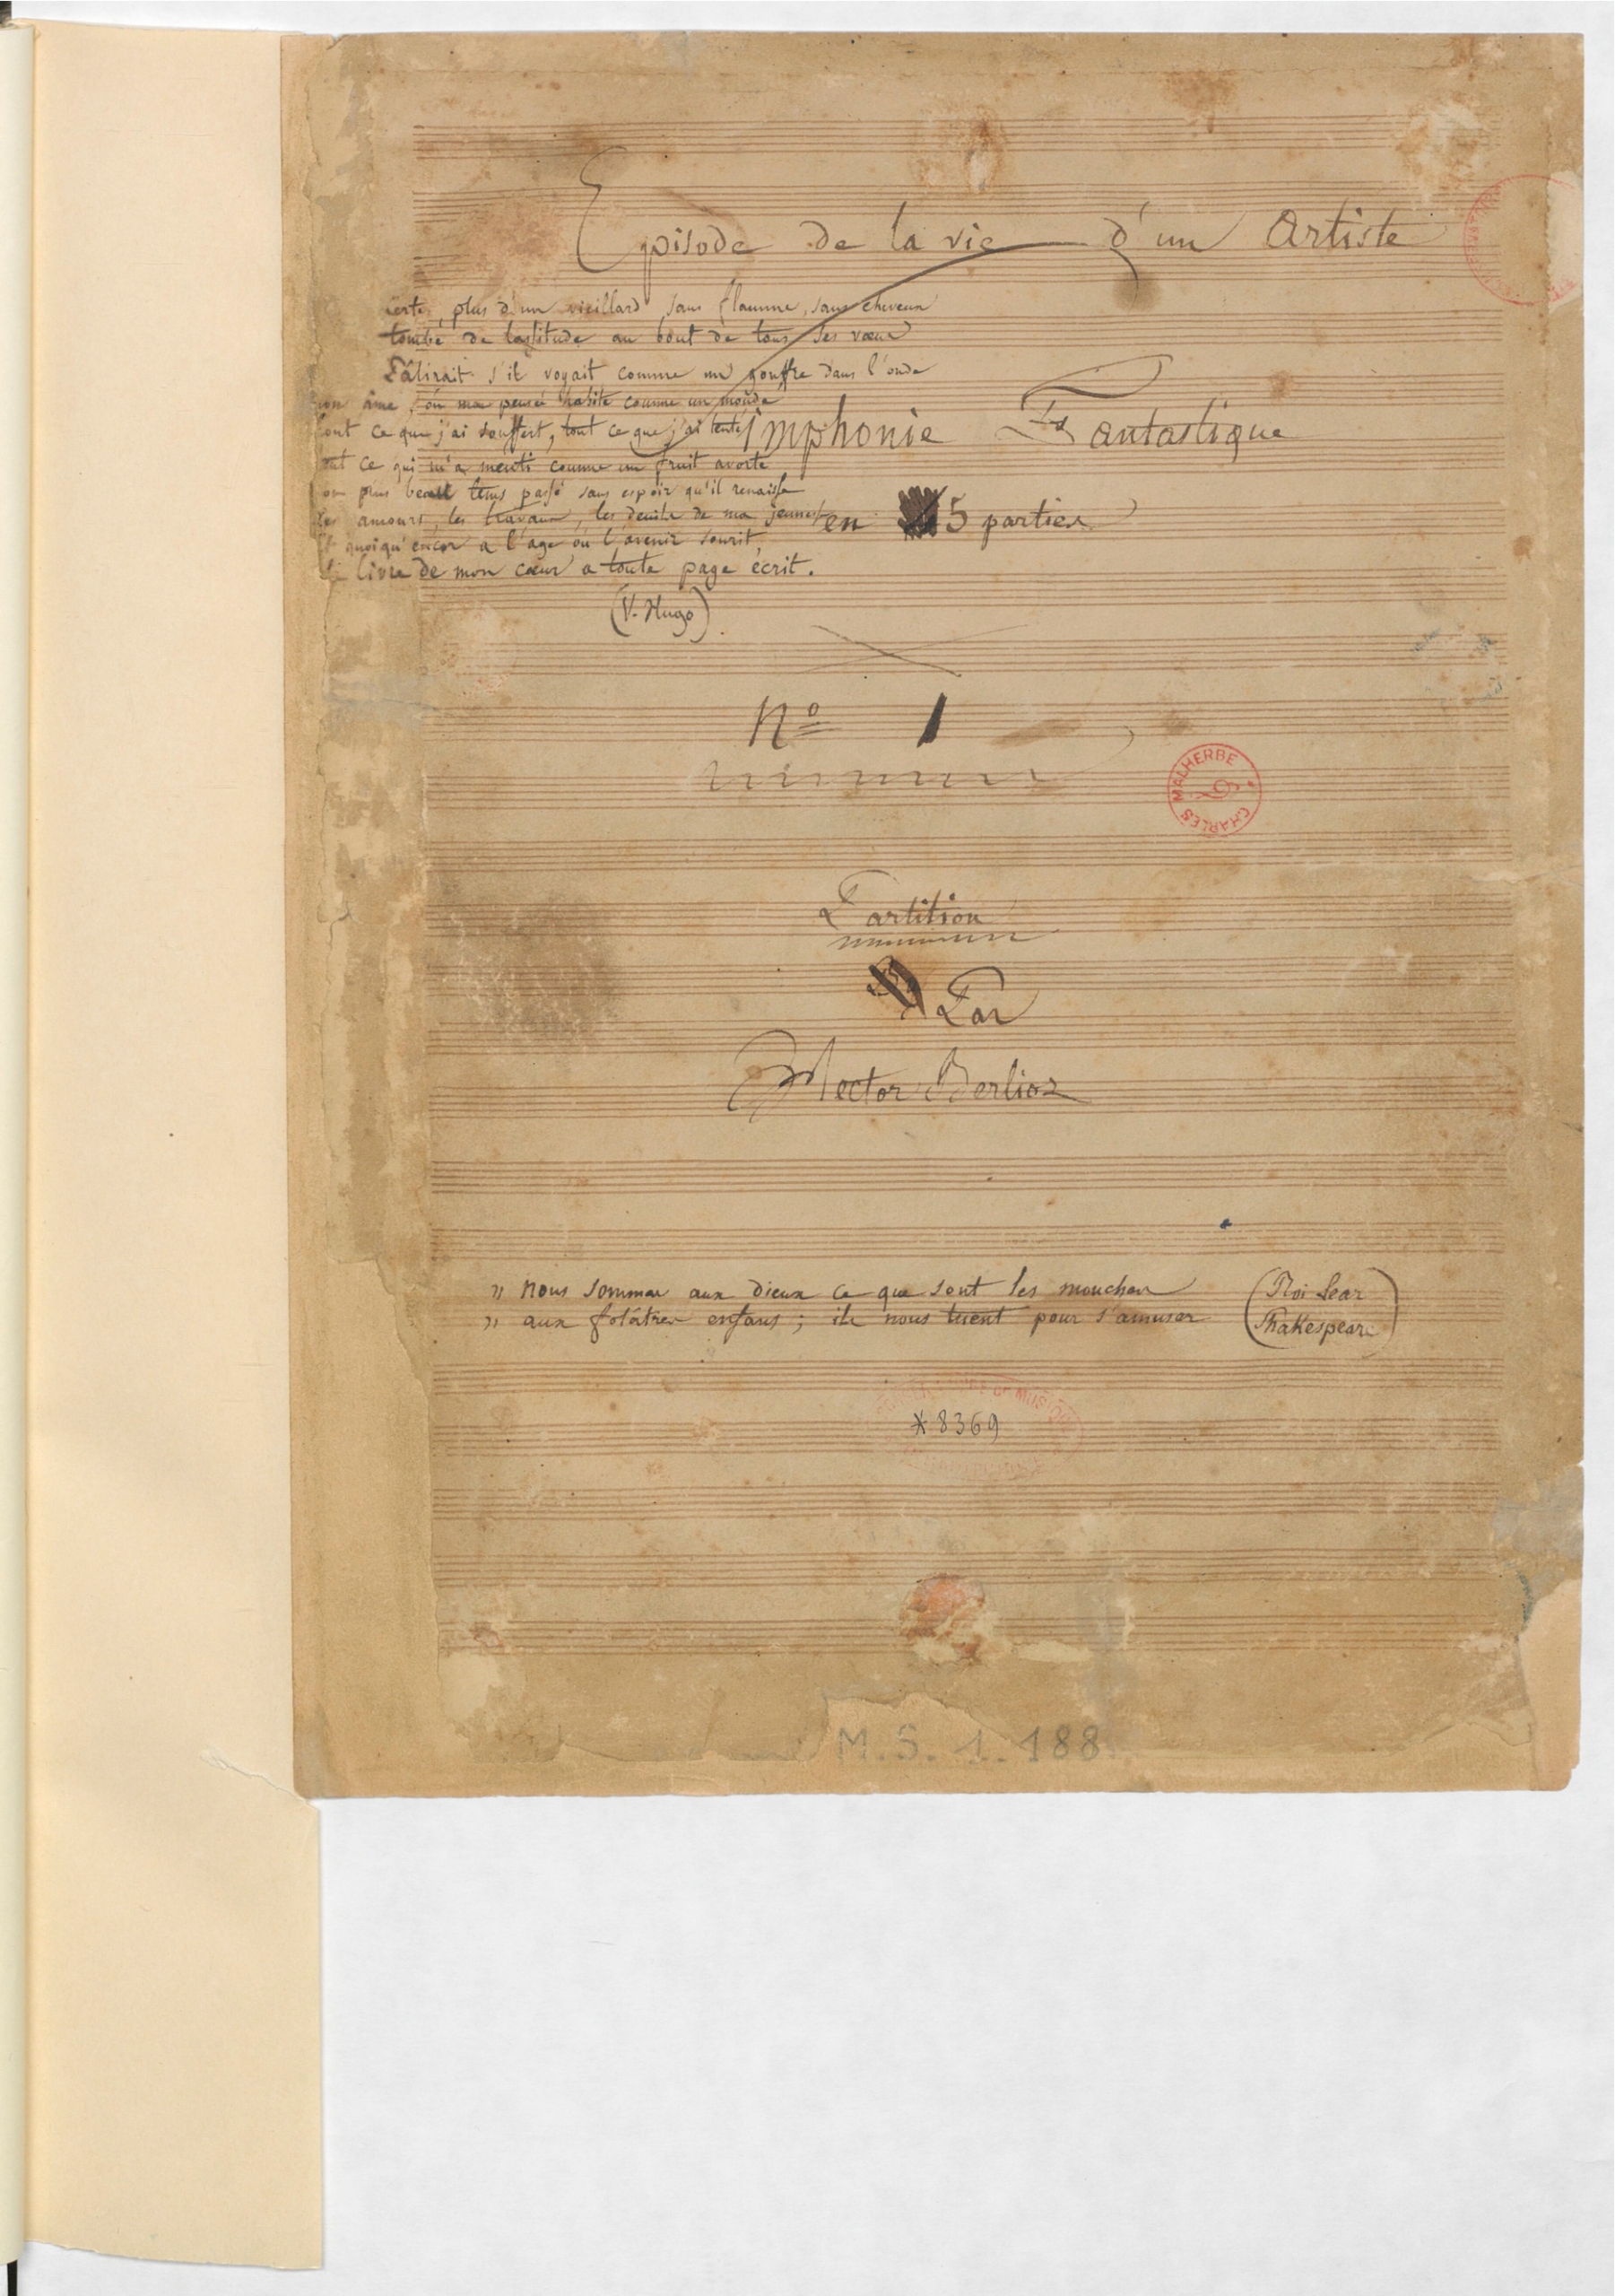 Episode de la vie d'un Artiste
Certes, plus d'un vieillard sans flamme, sans cheveux
tombé de lassitude au bout de tous ses vœux
Pâlirait s'il voyait comme un gouffre dans l'onde
mon âme, où ma pensée habite comme un monde
tout ce que j'ai souffert, tout ce que j'ai tenté
Symphonie Fantastique
tout ce qui m'a menti comme un fruit avorté
mon plus beau tems passé sans espoir qu'il renaisse
les amours, les travaux, les deuils de ma jeunesse
en 5 parties
Et quoiqu'encor a l'age ou l'avenir sourit,
Le livre de mon cœur a toute page écrit.
(V. Hugo)
No 1
CHARLES MALHERBE
Partition
Par
Hector Berlioz
" nous sommes aux dieux ce que sont les mouches
" aux folâtres enfans; ils nous tuent pour s'amuser
(Roi Lear
Shakespeare)
DE MUSIQUE
* 8369
M.S. 1. 188